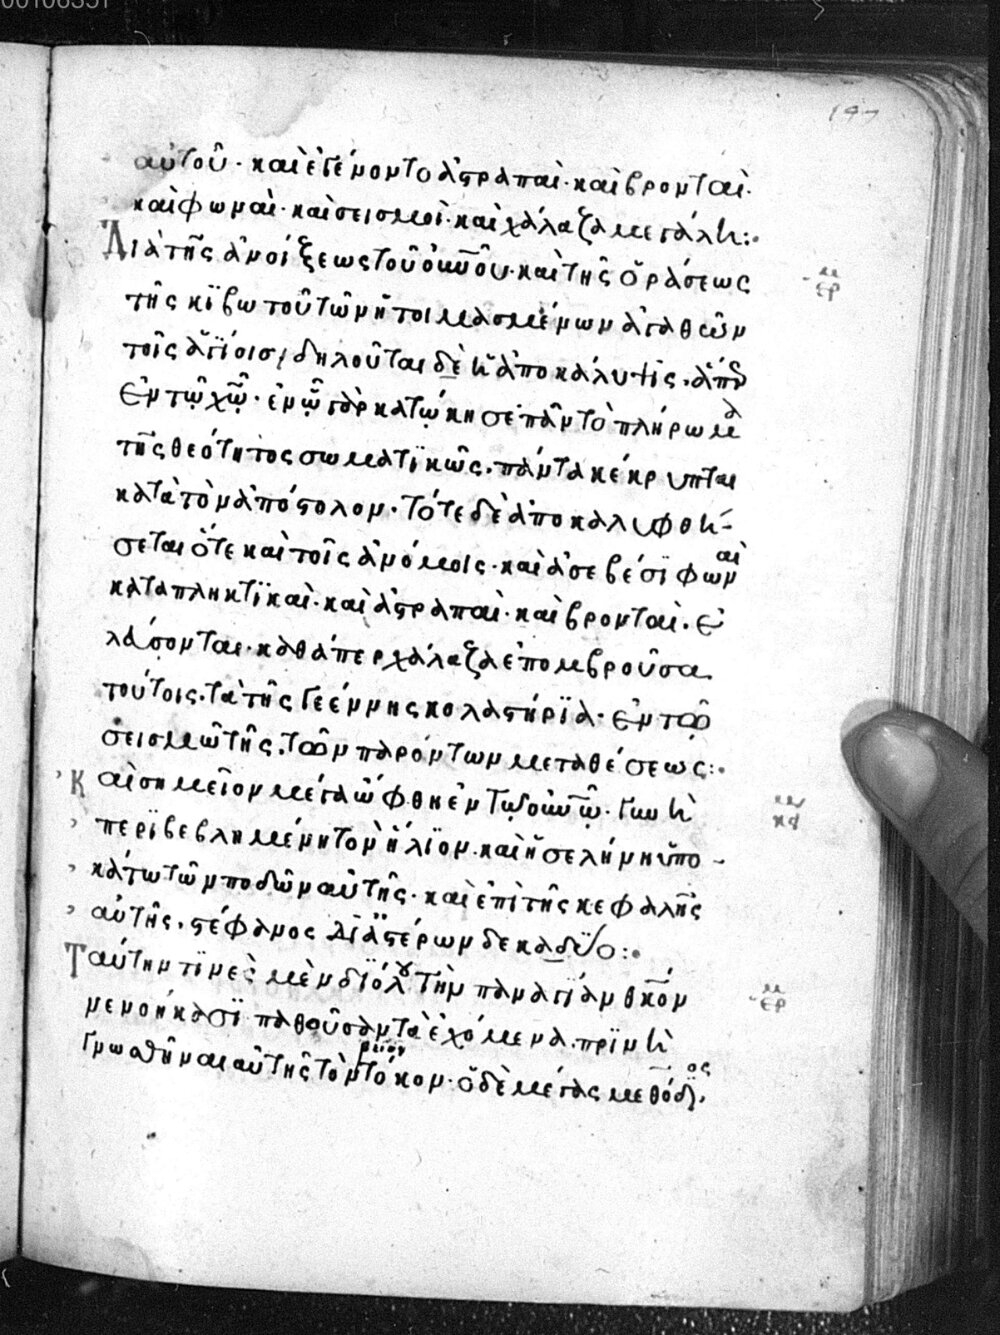 147
αὐτοῦ· καὶ ἐγένοντο ἀστραπαὶ· καὶ βρονταὶ·
καὶ φωναὶ· καὶ σεισμοὶ· καὶ χάλαζα μεγάλη:·
Διὰ τῆς ἀνοίξεως τοῦ οὐν̅ου· καὶ τῆς ὁράσεως
ἑρ
τῆς κϊβωτοῦ τῶν ἡτοιμασμένων ἀγαθῶν
τοῖς ἁγίοις, δηλοῦται δὲ ἡ ἀποκάλυψις, ἅπερ
ἐν τῷ χῷ̅· ἐν ᾧ γὰρ κατῴκησε πᾶν τὸ πλήρωμα
τῆς θεότητος σωματϊκῶς, πάντα κέκρυπται
κατὰ τὸν ἀπόστολον· τότε δὲ ἀποκαλυφθή-
σεται ὅτε καὶ τοῖς ἀνόμοις· καὶ ἀσεβέσϊ φωναὶ
καταπληκτϊκαὶ· καὶ ἀστραπαὶ· καὶ βρονταὶ· ἐ
λάσονται· καθάπερ χάλαζα ἐπομβροῦσα
τούτοις, τὰ τῆς γεέννης κολαστήρϊα· ἐν τῷ
σεισμῷ τῆς, τῶν παρόντων μεταθέσεως:·
Καὶ σημεῖον μέγα ὤφθη ἐν τῷ οὐν̅ῷ· γυνὴ
κα
περϊβεβλημένη τὸν ἥλϊον· καὶ ἡ σελήνη ὑπο-
κάτω τῶν ποδῶν αὐτῆς· καὶ ἐπὶ τῆς κεφαλῆς
αὐτῆς, στέφανος ἀστέρων δεκαδύο:·
Ταύτην τϊνὲς μὲν δϊόλου τὴν παναγίαν θκ̅ον
ἑρ
νενοήκασϊ παθοῦσαν τὰ ἑχόμενα, πρὶν ἢ
γνωσθῆναι αὐτῆς τὸν θεῖον τόκον· ὁ δὲ μέγας μεθόδϊος,